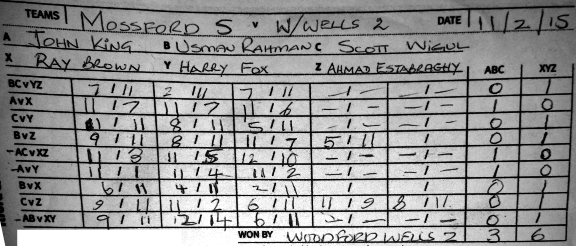 TEAMS MOSSFORD 5 v W/WELLS 2 DATE 11/2/15
A JOHN KING B USMAN RAHMAN C SCOTT WIGUL
X RAY BROWN Y HARRY FOX Z AHMAD ESTABRAGHY ABC XYZ
BCvYZ 7 / 11 2 / 11 7 / 11 - / - - / - 0 1
AvX 11 / 7 11 / 7 11 / 6 - / - - / - 1 0
CvY 8 / 11 8 / 11 5 / 11 - / - - / - 0 1
BvZ 9 / 11 8 / 11 11 / 7 5 / 11 - / - 0 1
-ACvXZ 11 / 8 11 / 5 12 / 10 - / - - / - 1 0
-AvY 11 / 1 11 / 4 11 / 2 - / - - / - 1 0
BvX 6 / 11 4 / 11 2 / 11 / / 0 1
CvZ 9 / 11 11 / 2 6 / 11 11 / 9 8 / 11 0 1
-ABvXY 9 / 11 12 / 14 6 / 11 - / - - / - 0 1
WON BY WOODFORD WELLS 2 3 6